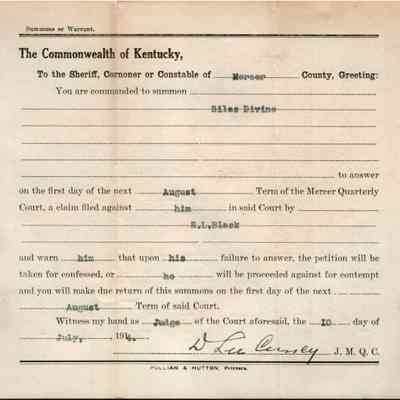 Summons or Warrant.
The Commonwealth of Kentucky,
To the Sheriff, Cornoner or Constable of Mercer County, Greeting:
You are commanded to summon
Silas Divine
to answer
on the first day of the next August Term of the Mercer Quarterly
Court, a claim filed against him in said Court by
R.L.Black
and warn him that upon his failure to answer, the petition will be
taken for confessed, or he will be proceeded against for contempt
and you will make due return of this summons on the first day of the next
August Term of said Court.
Witness my hand as Judge of the Court aforesaid, the 10 day of
July, 1914.
D Lee Curry J. M. Q. C.
PULLIAM & HUTTON, Printers.